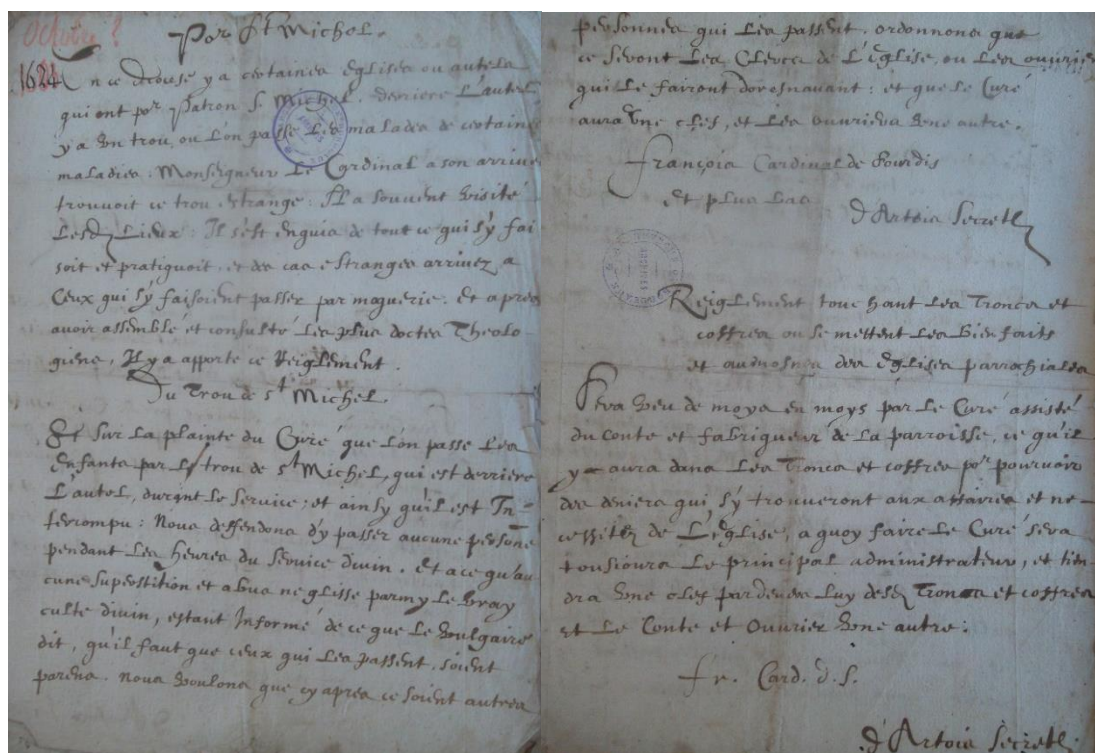 Octobre ?
1624
Por St Michel.
En ce diocuse y a certaines Eglises ou autels
qui ont por Patron St Michel. derriere l'autel
y a Vn trou, ou l'on passe les malades de certaines
maladies: Monseigneur Le Cardinal a son arrivee
trouvoit ce trou estrange: Il a souvent visité
Lesdz Lieux: Il s'est enquis de tout ce qui s'y fai
soit et pratiquoit, et des cas estranges arrivez a
Ceux qui s'y faisoient passer par moquerie. Et apres
avoir assemblé et consulté Les plus doctes Theolo
giens, Il y a apporté ce Reiglement.
Du Trou de St Michel.
Et sur la plainte du Curé que l'on passe Les
Enfants par le trou de St Michel, qui est derriere
L'autel, durant le service; et ainsy qu'il est In-
terrompu: Nous deffendons d'y passer aucune personne
pendant Les heures du service divin. Et a ce qu'au
cune superstition et abus ne glisse parmy le vray
culte divin, estant Informé de ce que le Voulgaire
dit, qu'il faut que ceux qui Les passent, soient
parens. Nous Voulons que cy apres ce soient autres
personnes qui Les passent. ordonnons que
ce seront Les Clercs de L'Eglise, ou Les ouvriers
qui le fairont doresnavant: et que le Curé
aura Vne clef, et Les ouvriers Vne autre.
François Cardinal de Sourdis
Et plus bas
d'Artois Secretl
Reiglement touchant Les Troncs et
coffres ou se mettent Les bienfaits
et aumosnes des Eglises parrochiales
Sera Veu de moys en moys par le Curé assisté
du Conte et fabriqueur de la parroisse, ce qu'il
y aura dans Les Troncs et coffres por pourvoir
des deniers qui s'y trouveront aux affaires et ne-
cessitez de L'Eglise, a quoy faire le Curé sera
tousiours Le principal administrateur, et tien
dra Vne clef par devers Luy desdz Troncs et coffres
et Le Conte et Ouvrier Vne autre:
fr. Card. d. S.
d'Artois Secretl.